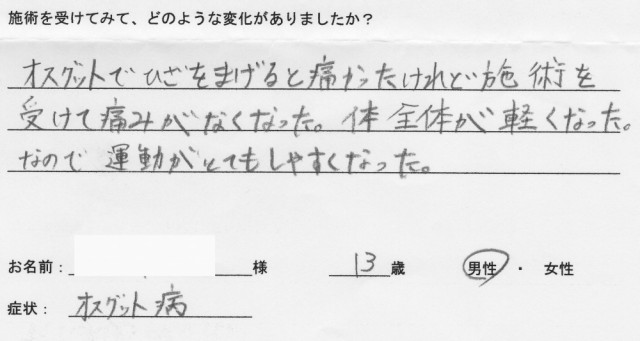 施術を受けてみて、どのような変化がありましたか？
オスグットでひざをまげると痛かったけれど施術を
受けて痛みがなくなった。体全体が軽くなった。
なので運動がとてもしやすくなった。
お名前： 様 13歳 男性 ・ 女性
症状： オスグット病